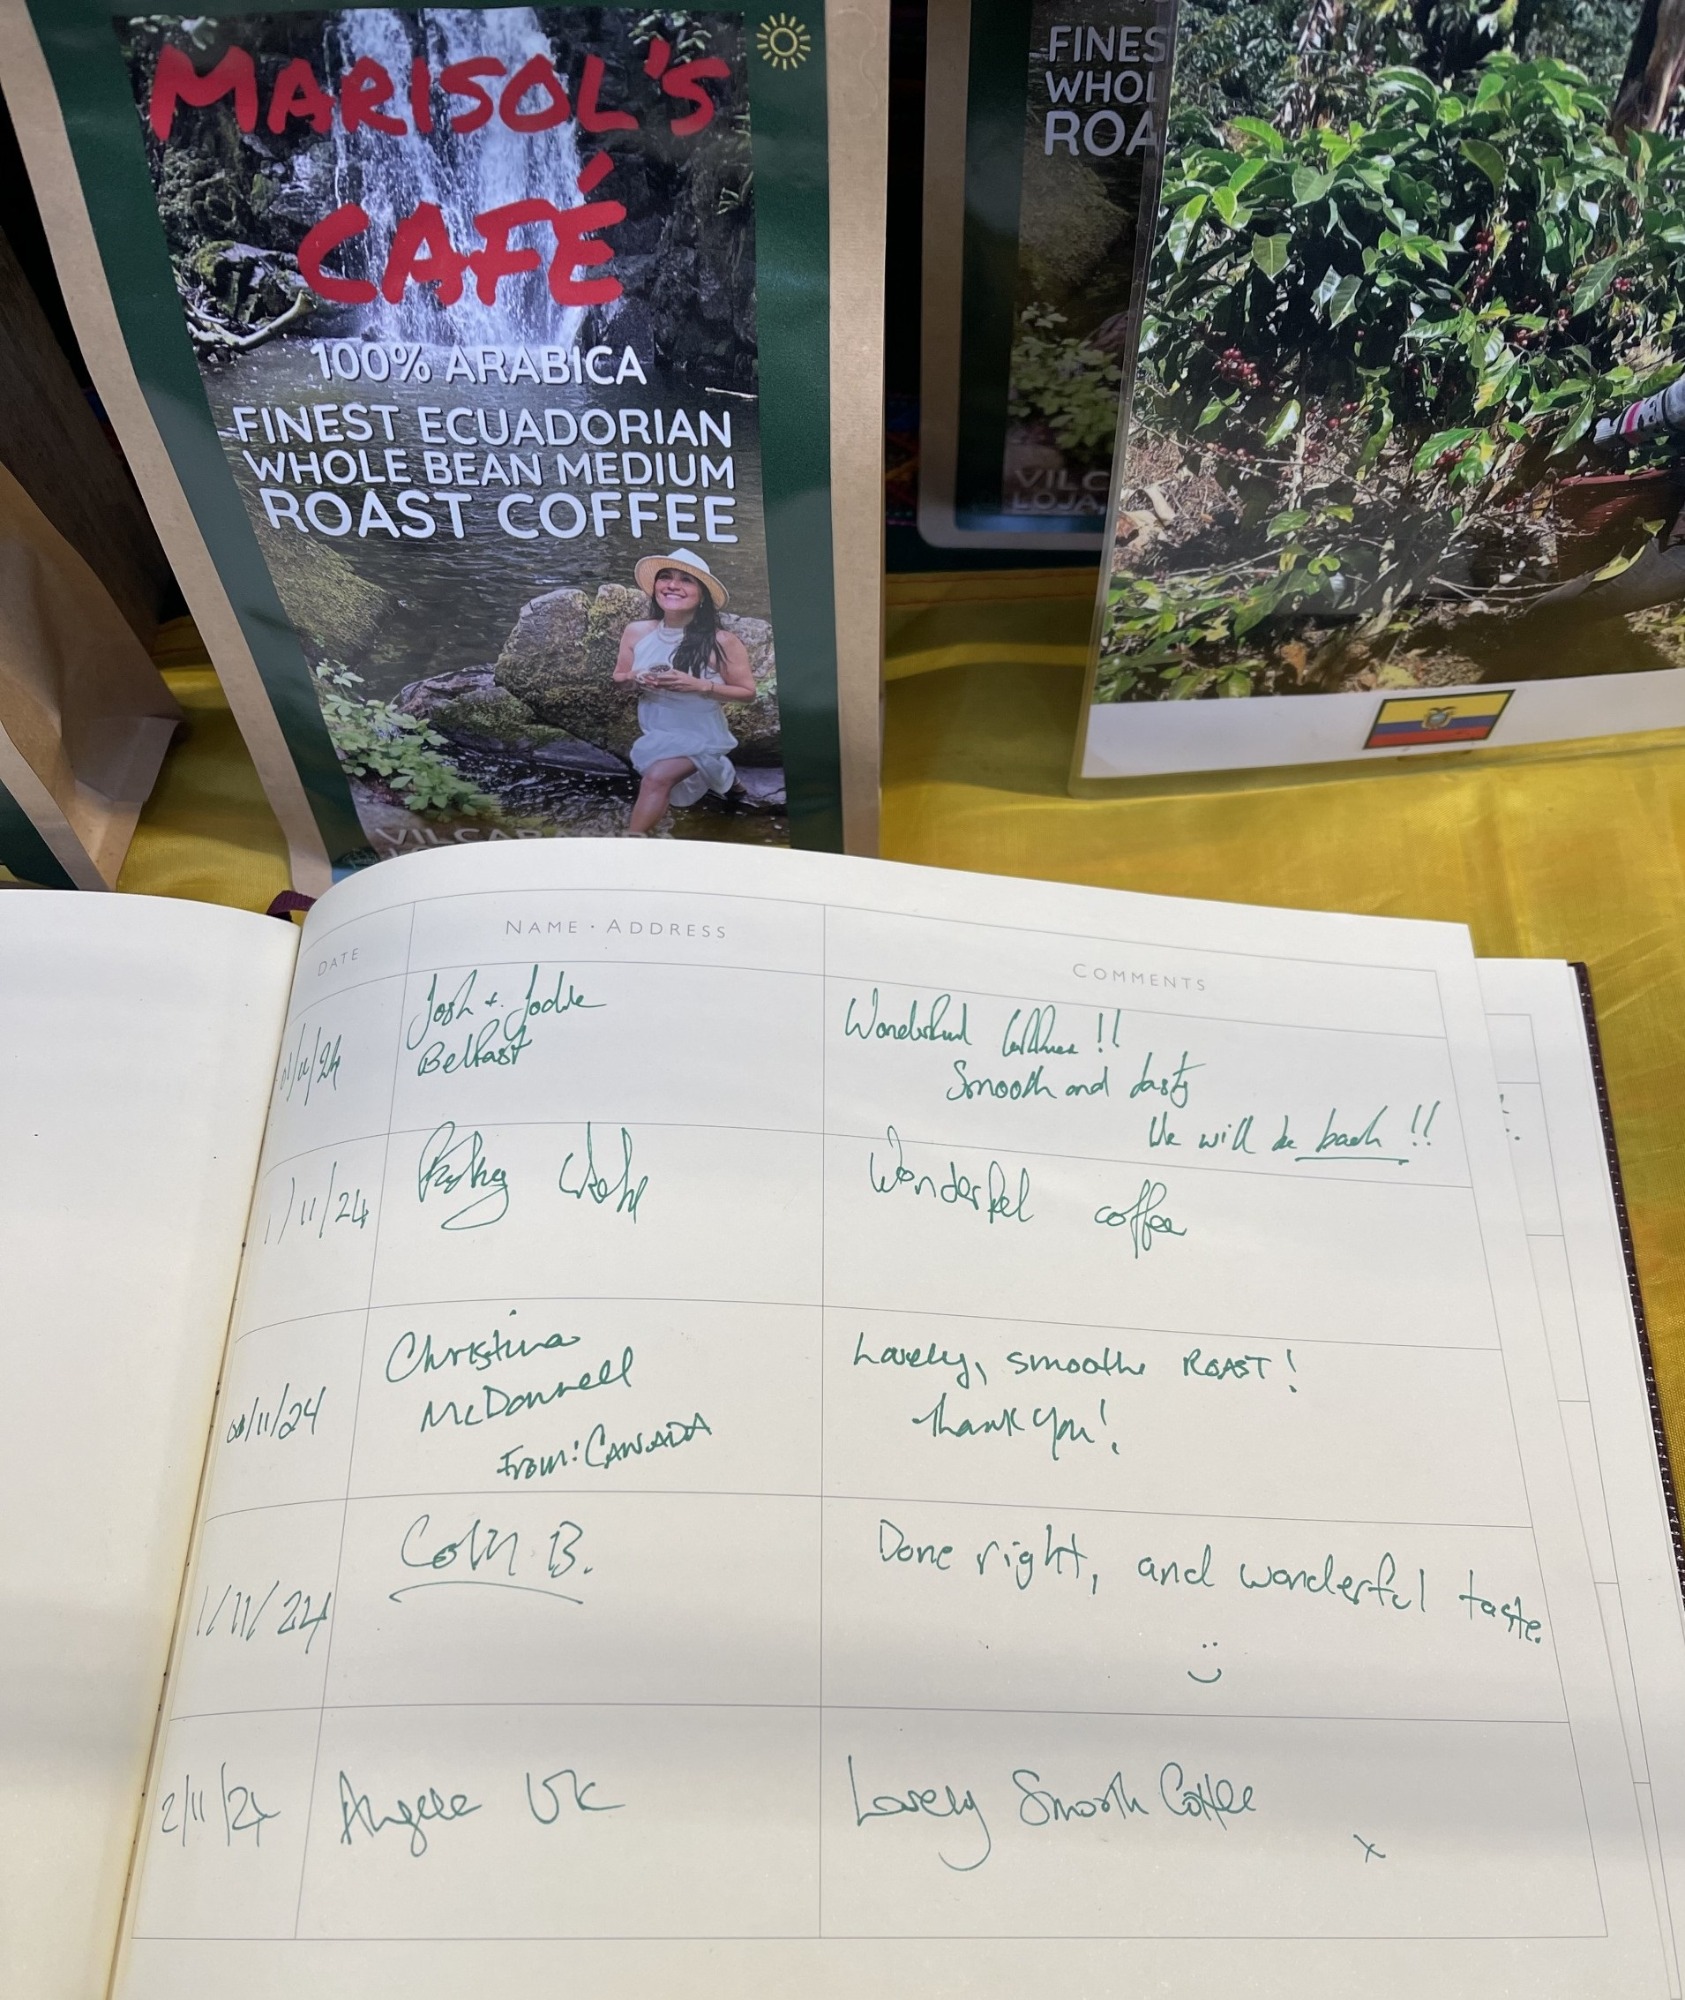 MARISOL'S
CAFÉ
100% ARABICA
FINEST ECUADORIAN
WHOLE BEAN MEDIUM
ROAST COFFEE
FINES
WHOL
ROA
VILC
LOJA,
DATE
NAME · ADDRESS
COMMENTS
Josh + Jodie
Belfast
Wonderful Coffee!!
Smooth and tasty
We will be back!!
1/11/24
Wonderful coffee
Christina
McDonnell
From: CANADA
/11/24
Lovely, smooth ROAST!
Thank you!
1/11/24
Colin B.
Done right, and wonderful taste.
2/11/24
Angela UK
Lovely Smooth Coffee
x